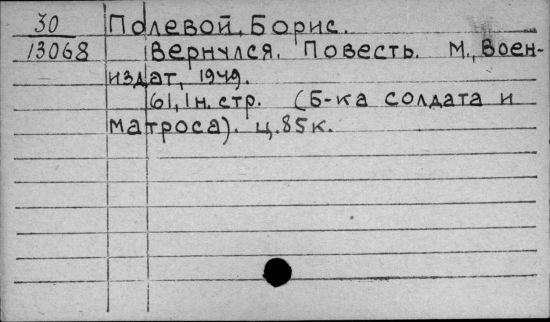 30 Полевой, Борис.
13068 Вернулся. Повесть. М., Воен-
издат, 1949.
61, 1 н. стр. (Б-ка солдата и
матроса). ц. 85 к.